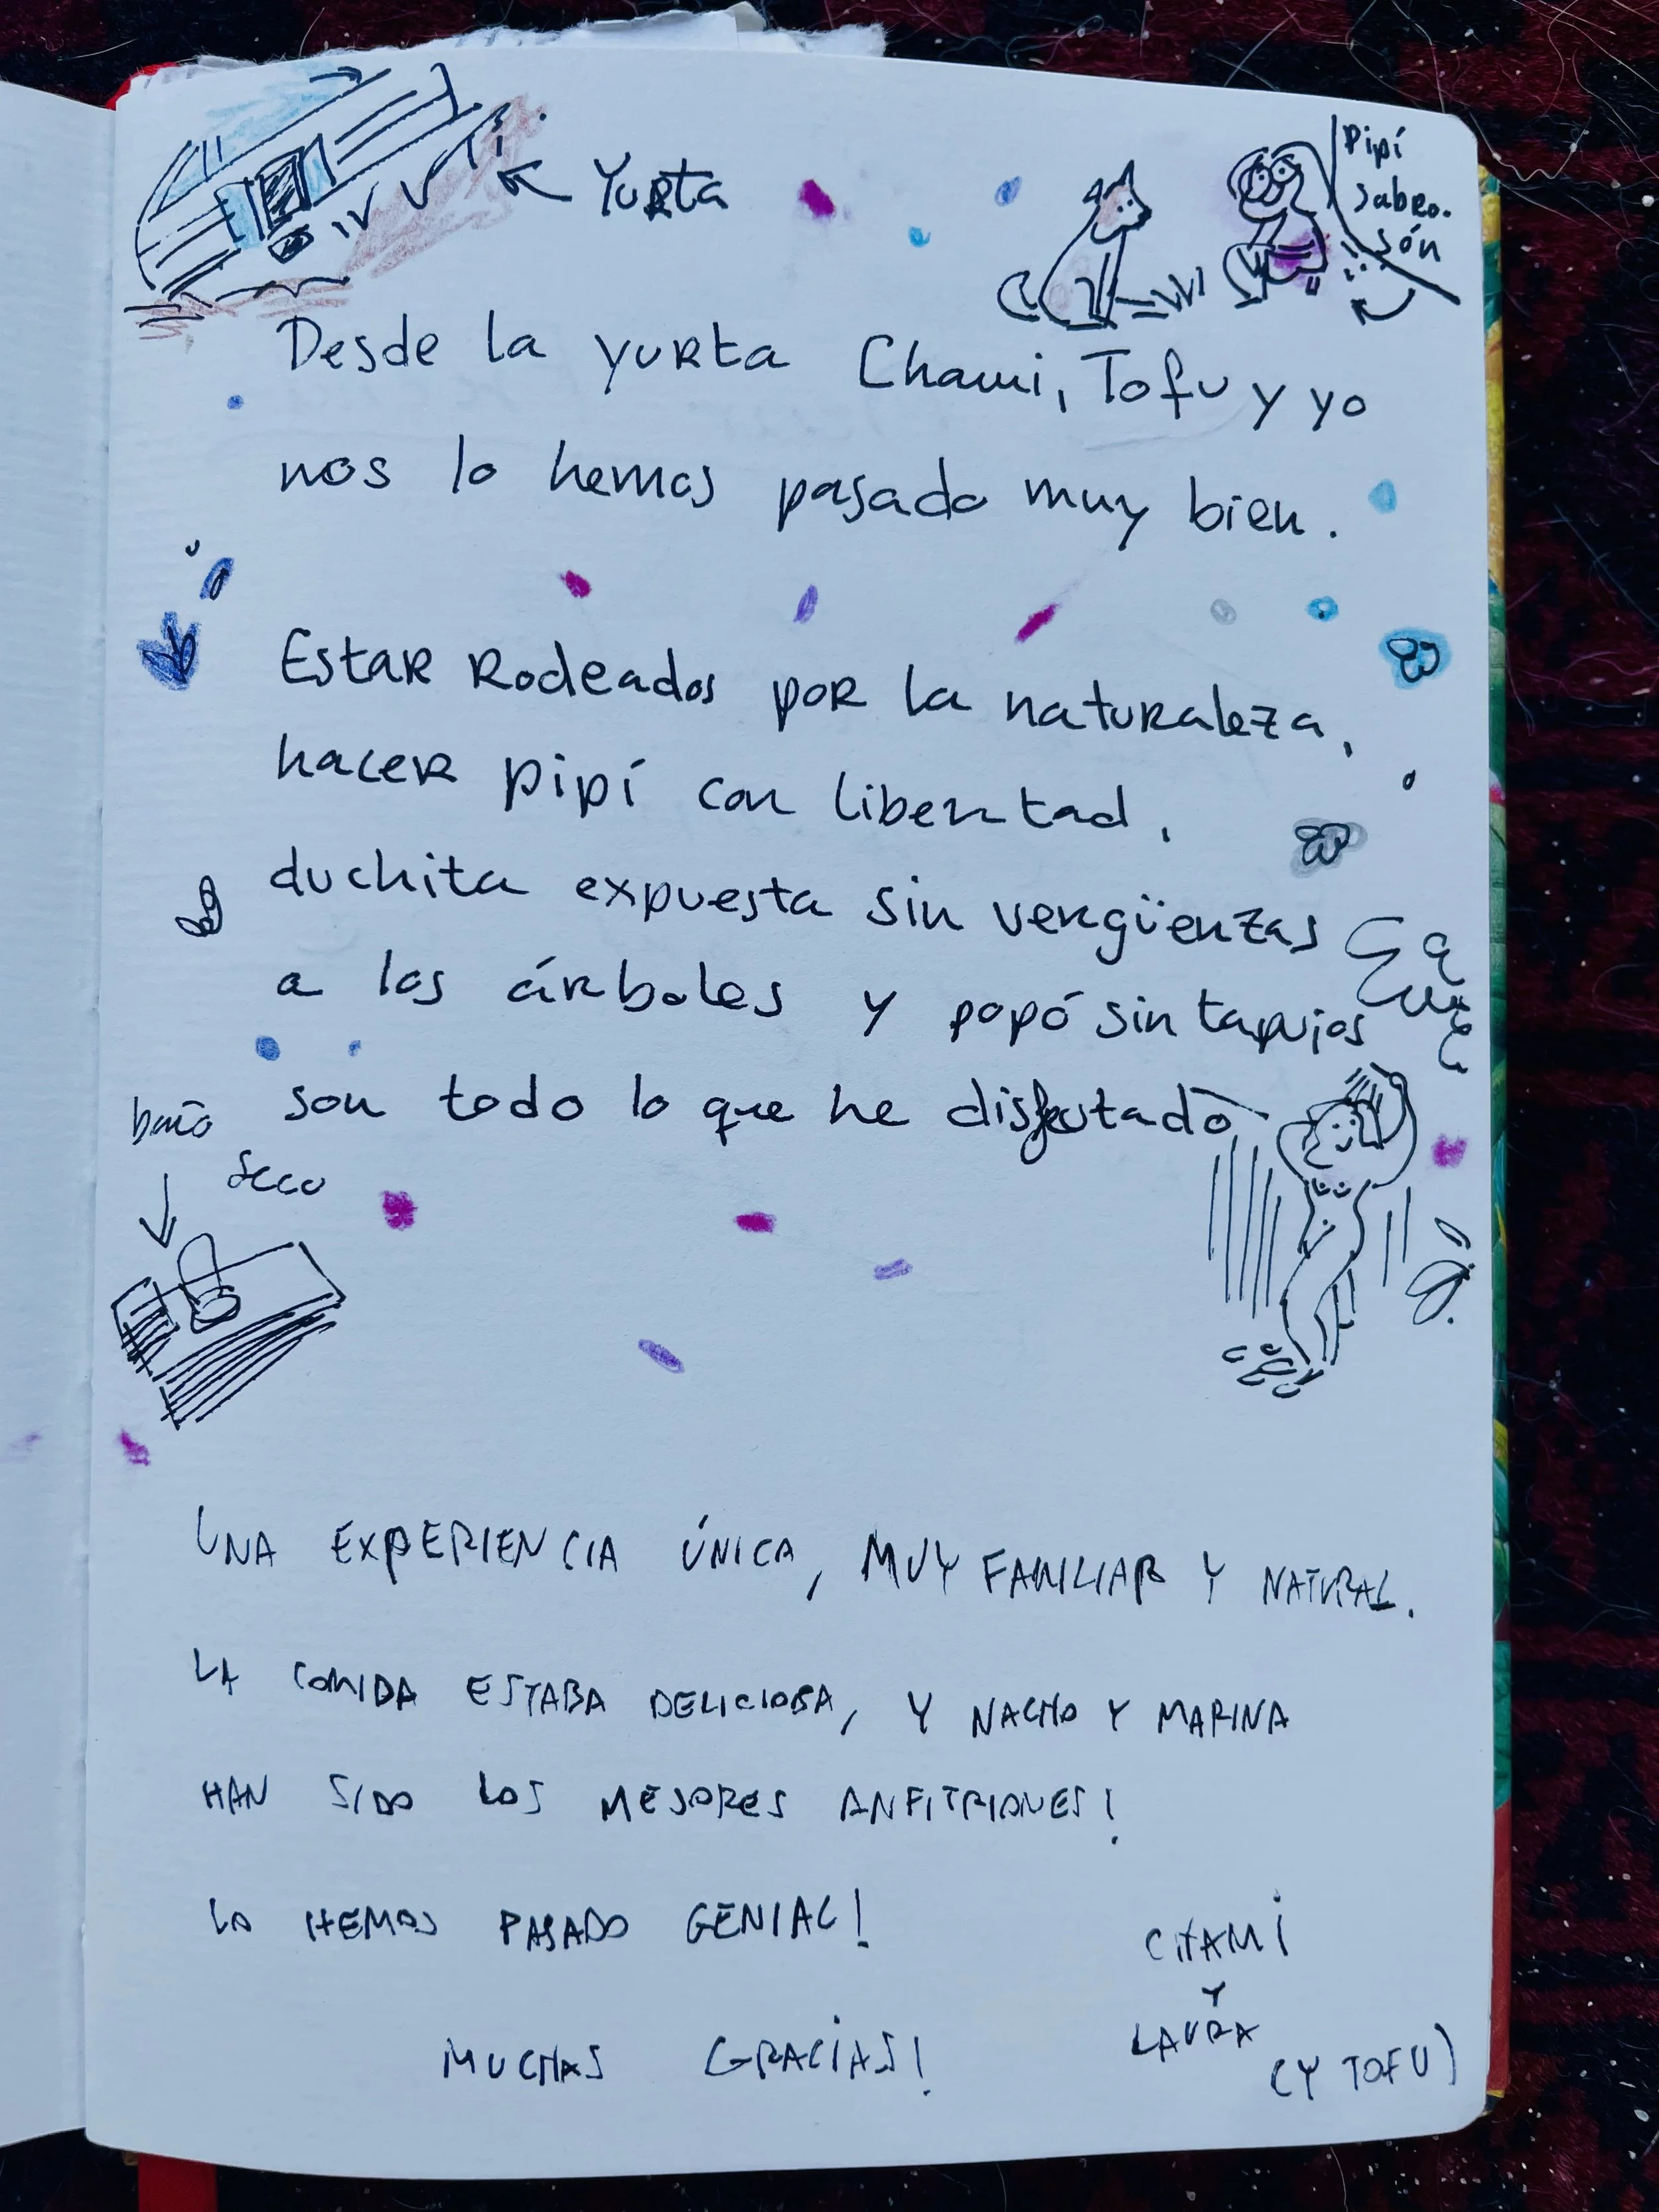 Yurta
Pipí
sabro.
són
Desde la yurta Chami, Tofu y yo
nos lo hemos pasado muy bien.
Estar rodeados por la naturaleza,
hacer pipí con libertad,
duchita expuesta sin vergüenzas
a los árboles y popó sin tapujos
son todo lo que he disfrutado
baño
seco
UNA EXPERIENCIA ÚNICA, MUY FAMILIAR Y NATURAL.
LA COMIDA ESTABA DELICIOSA, Y NACHO Y MARINA
HAN SIDO LOS MEJORES ANFITRIONES!
LO HEMOS PASADO GENIAL!
CHAMI
Y
LAURA
(Y TOFU)
MUCHAS GRACIAS!